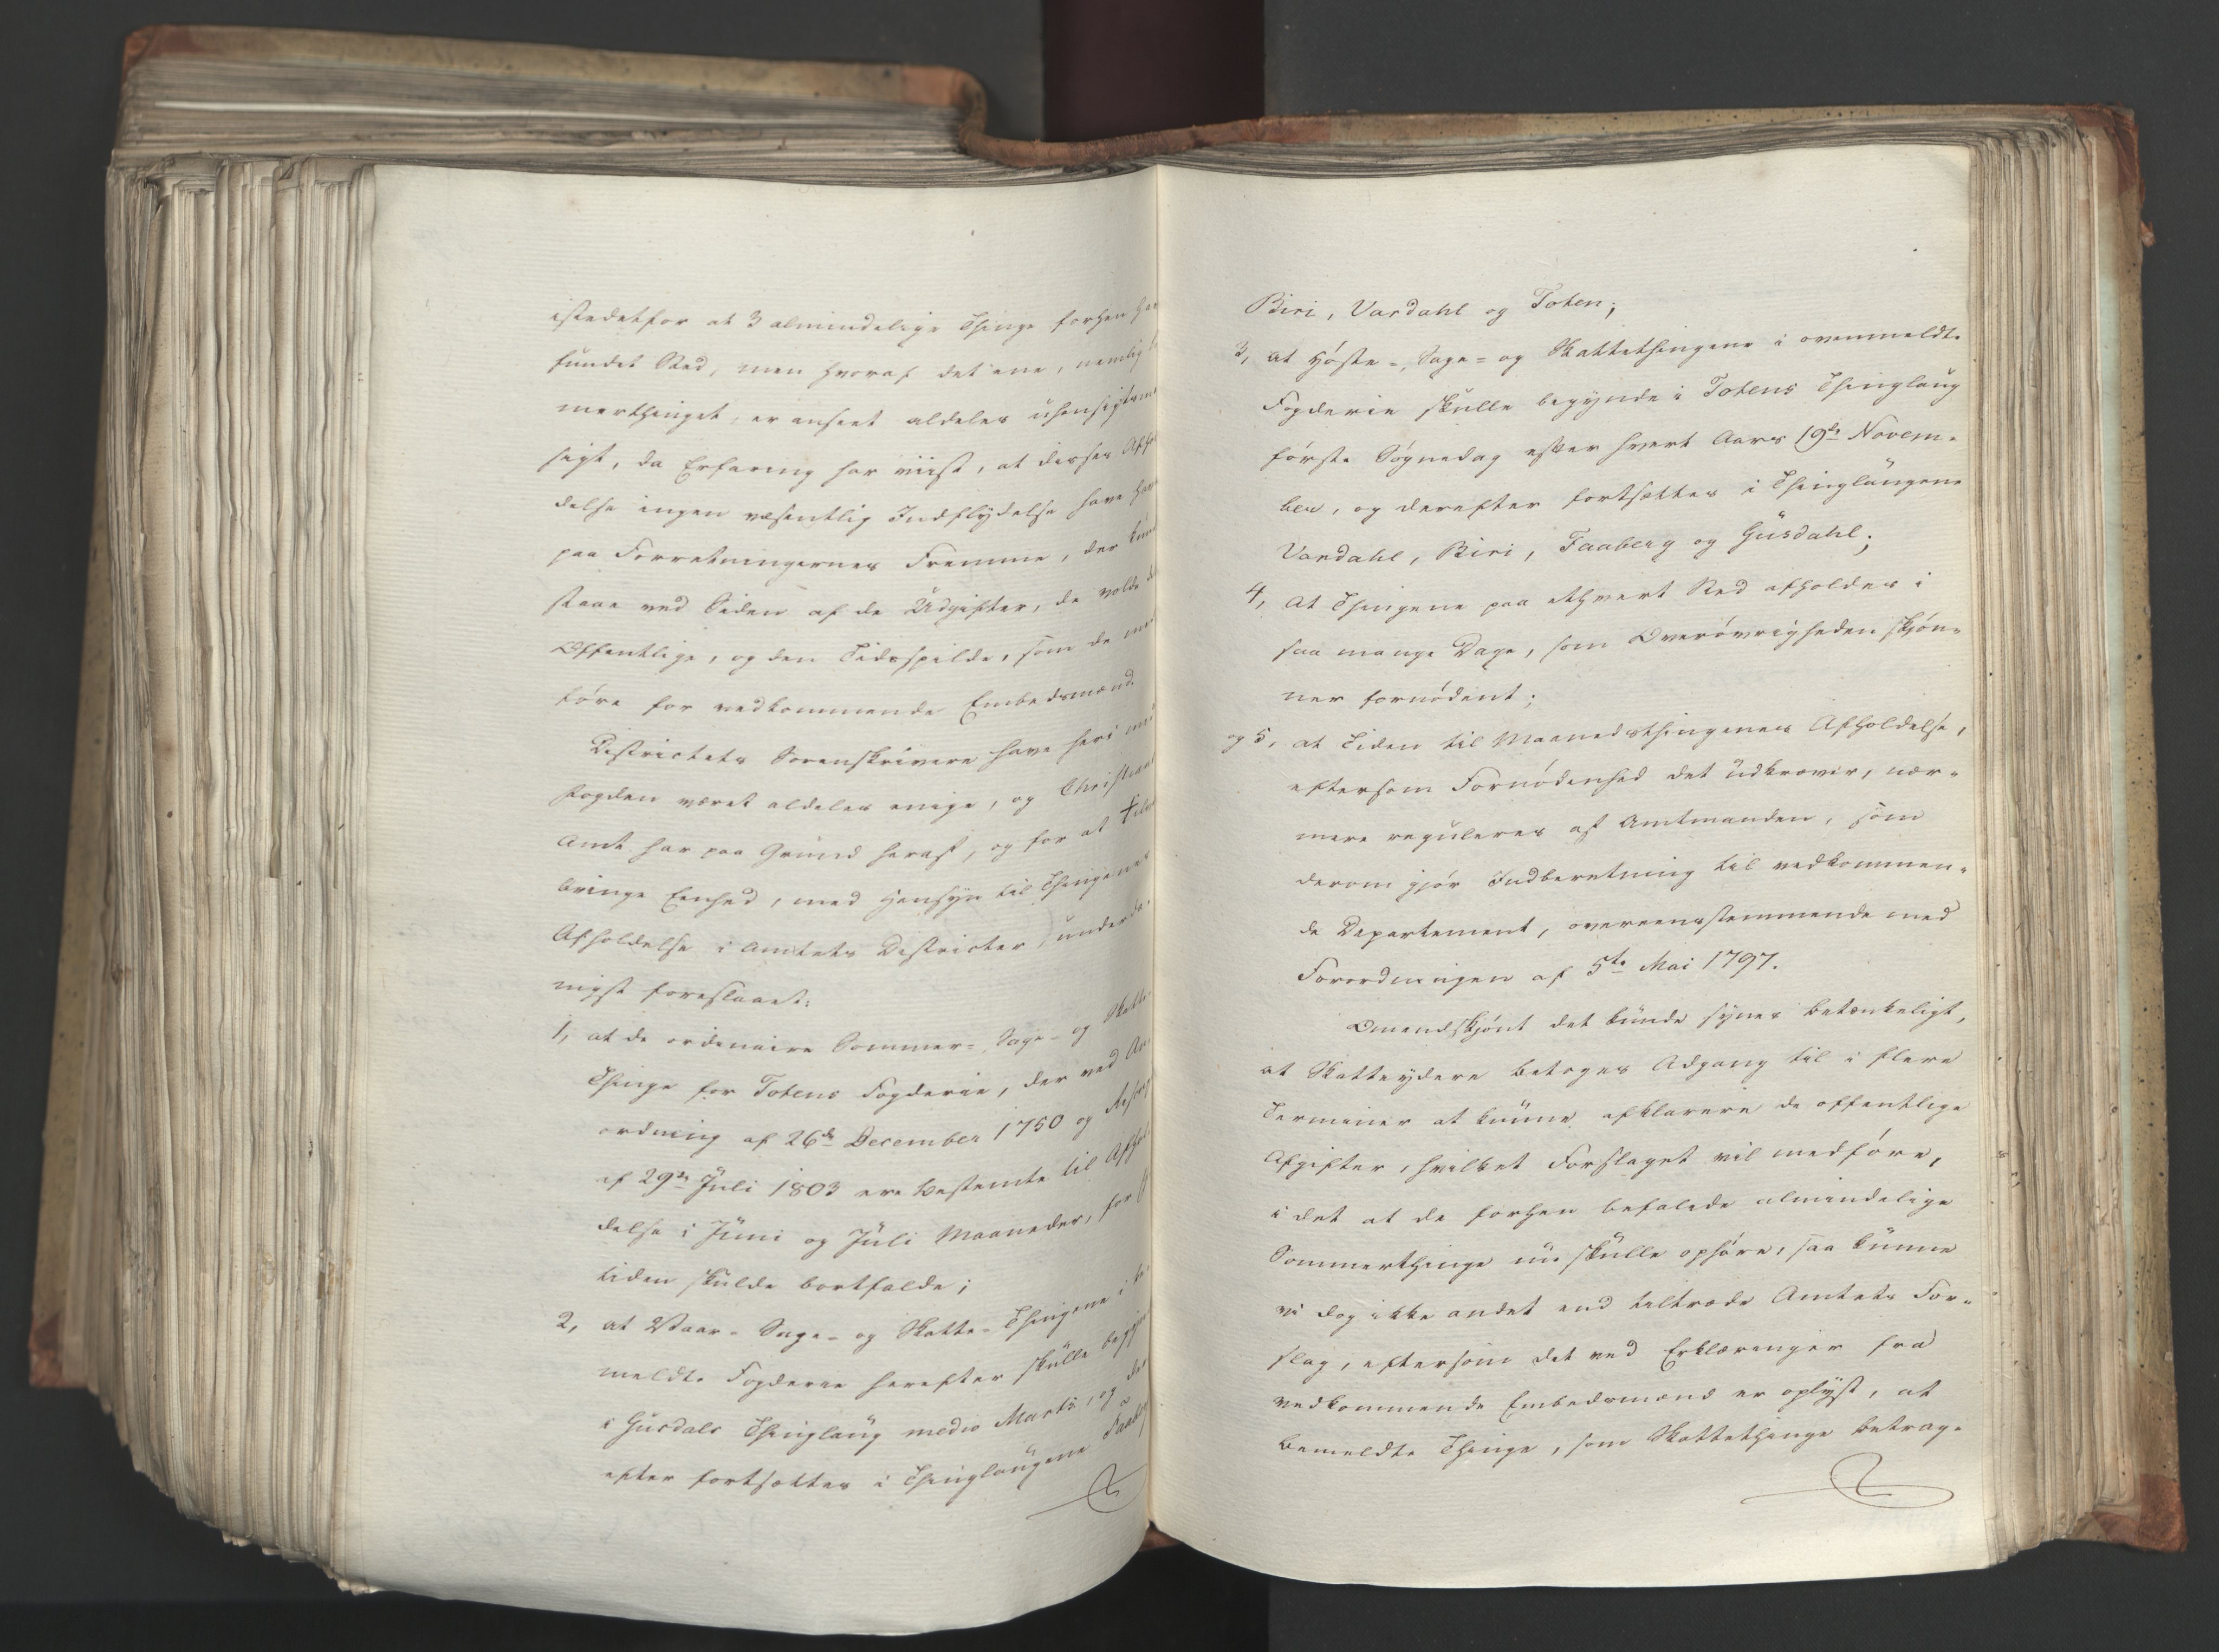 istedetfor at 3 almindelige Thinge forhen har
fundet Sted, men hvoraf det ene, nemlig
merthinget, er anseet aldeles uhensigtsmæs
sigt, da Erfaring har viist, at disses Afhol
delse ingen væsentlig Indflydelse have havt
paa Forretningernes Fremme, der kun
staae ved Siden af de Udgifter, de volde det
Offentlige, og den Tidsspilde, som de med
føre for vedkommende Embedsmænd.
Districtets Sorenskrivere have heri med
Fogden været aldeles enige, og Christians
Amt har paa Grund heraf, og for at tilve
bringe Eenhed, med Hensyn til Thingenes
Afholdelse i Amtets Districter, underda-
nigst foreslaaet:
1, at de ordinaire Sommer- Sage- og Skatte-
Thinge for Totens Fogderie, der ved An-
ordning af 26de December 1750 og Rescript
af 29de Juli 1803 ere bestemte til Afhol
delse i Juni og Juli Maaneder, for
tiden skulde bortfalde;
2, at Vaar- Sage- og Skatte-Thingene i be-
meldte Fogderie herefter skulle begynde
i Gusdals Thinglaug medio Marts, og der
efter fortsættes i Thinglaugene Faaberg
Biri, Vardahl og Toten;
3, at Høste-, Sage- og Skattethingene i ovenmeldte
Fogderie skulle begynde i Totens Thinglaug
første Søgnedag efter hvert Aars 19de Novem-
ber, og derefter fortsættes i Thinglaugene
Vardahl, Biri, Faaberg og Gusdahl;
4, at Thingene paa ethvert Sted afholdes i
saa mange Dage, som Overøvrigheden skjøn-
ner fornødent;
og 5, at Tiden til Maanedsthingenes Afholdelse,
eftersom Fornødenhed det udkræver, nær-
mere reguleres af Amtmanden, som
derom gjør Indberetning til vedkommen-
de Departement, overeensstemmende med
Forordningen af 5te Mai 1797.
Omendskjønt det kunde synes betænkeligt,
at Skatteydere betages Adgang til i flere
Terminer at kunne afklarere de offentlige
Afgifter, hvilket Forslaget vil medføre,
i det at de forhen befalede almindelige
Sommerthinge nu skulle ophøre, saa kunne
vi dog ikke andet end tiltræde Amtets For-
slag, eftersom det ved Erklæringer fra
vedkommende Embedsmænd er oplyst, at
bemeldte Thinge, som Skattethinge betrag-